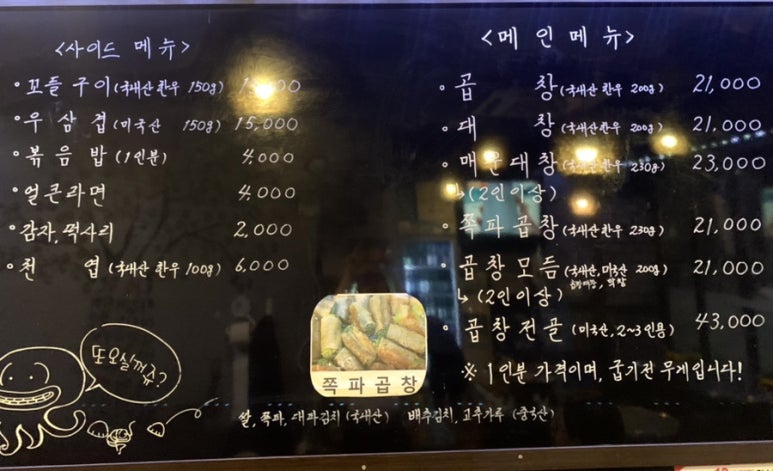 <사이드 메뉴>
• 꼬들 구이 (국내산 한우 150g)
• 우삼겹 (미국산 150g) 15,000
• 볶음밥 (1인분) 4,000
• 얼큰라면 4,000
• 감자, 떡사리 2,000
• 천엽 (국내산 한우 100g) 6,000
<메인메뉴>
• 곱창 (국내산 한우 200g) 21,000
• 대창 (국내산 한우 200g) 21,000
• 매운대창 (국내산 한우 230g) 23,000
↳ (2인이상)
• 쪽파곱창 (국내산 한우 230g) 21,000
• 곱창모듬 (국내산, 미국산 200g) 21,000
↳ (2인이상)
• 곱창전골 (미국산, 2~3인용) 43,000
※ 1인분 가격이며, 굽기전 무게입니다!
쪽파곱창
또오실꺼죠?
쌀, 쪽파, 대파김치 (국내산) 배추김치, 고추가루 (중국산)